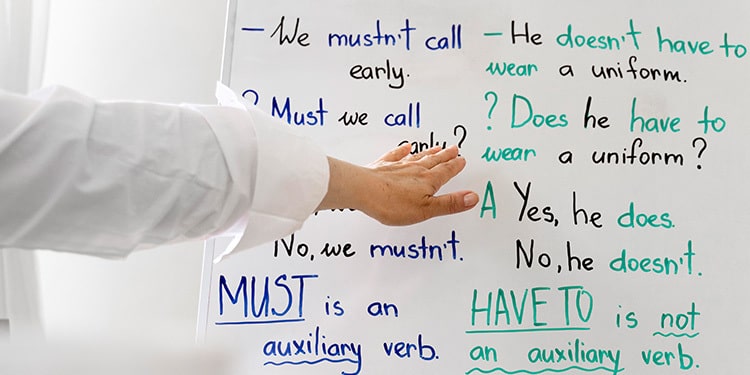 – We mustn't call
early.
? Must we call
early?
No, we mustn't.
MUST is an
auxiliary verb.
– He doesn't have to
wear a uniform.
? Does he have to
wear a uniform?
A Yes, he does.
No, he doesn't.
HAVE TO is not
an auxiliary verb.